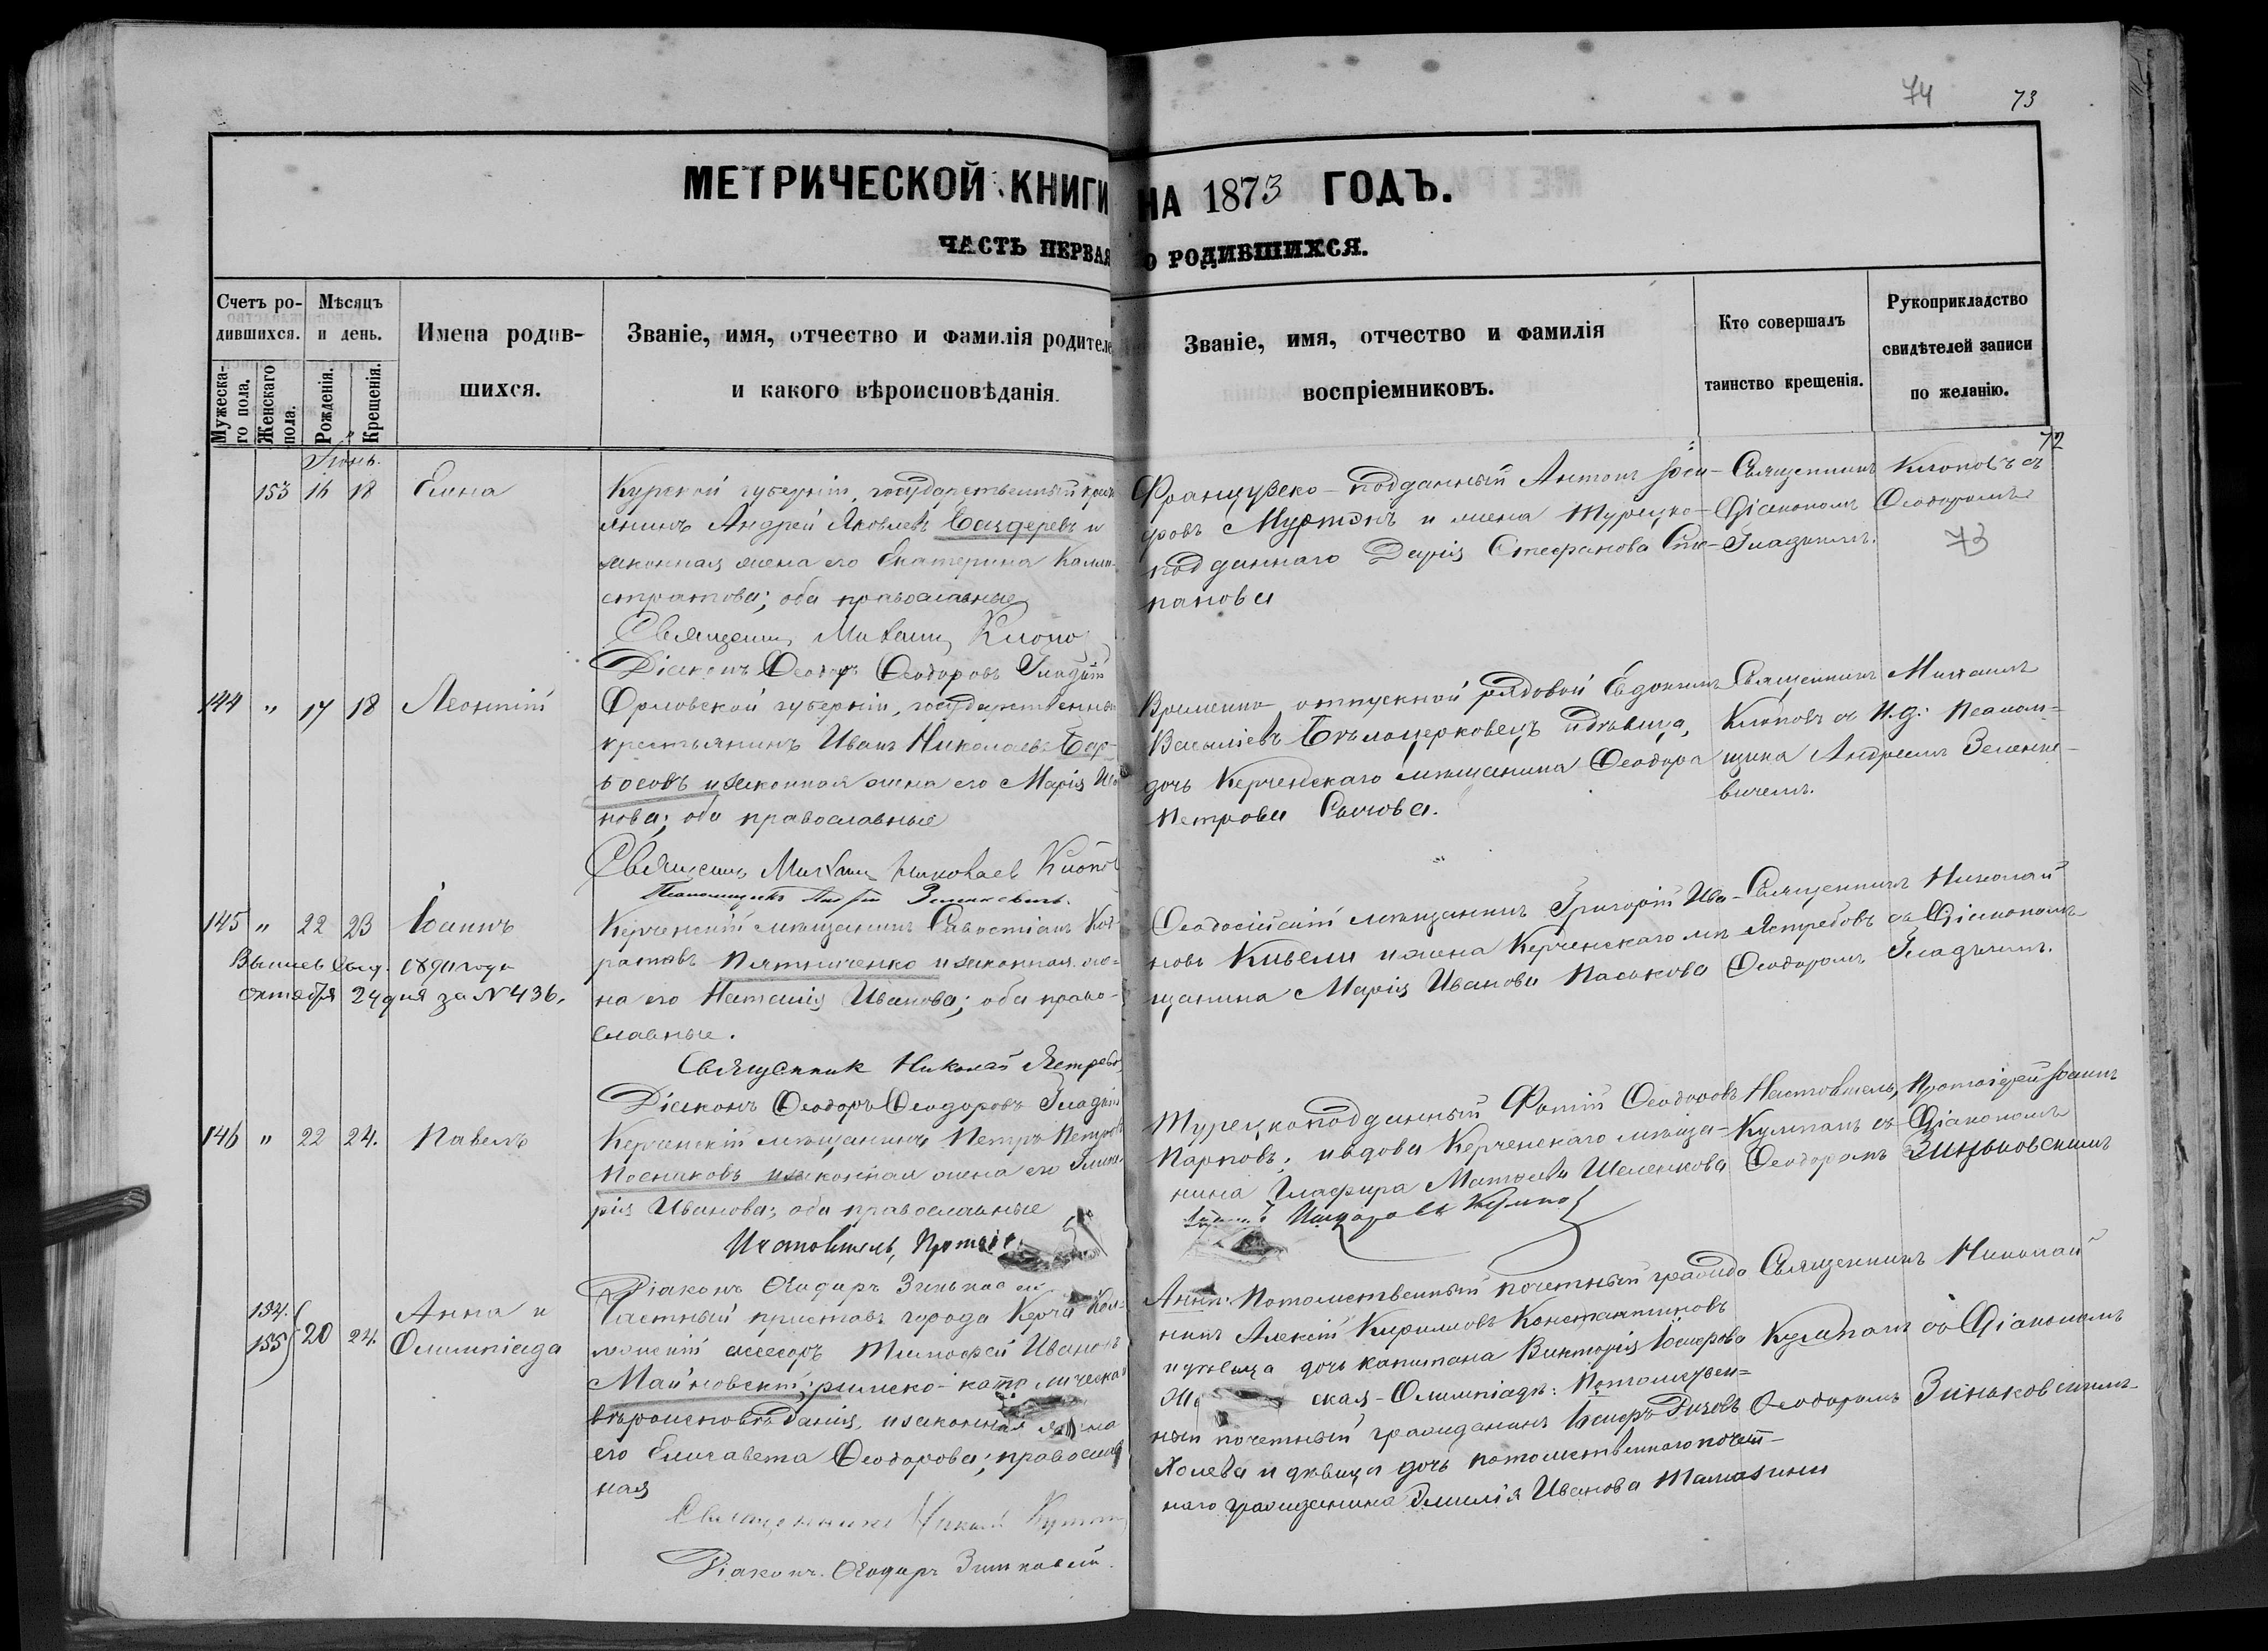 74 73
МЕТРИЧЕСКОЙ КНИГИ НА 1873 ГОДЪ.
ЧАСТЬ ПЕРВАЯ О РОДИВШИХСЯ.
Счетъ ро-
дившихся.
Мужеска-
го пола.
Женскаго
пола.
Мѣсяцъ
и день.
Рожденія.
Крещенія.
Имена родив-
шихся.
Званіе, имя, отчество и фамилія родителе
и какого вѣроисповѣданія.
Званіе, имя, отчество и фамилія
воспріемниковъ.
Кто совершалъ
таинство крещенія.
Рукоприкладство
свидѣтелей записи
по желанію.
72
Іюнь.
153 16 18 Елена
Курской губерніи, государственный крест
янинъ Андрей Яковлевъ и
законная жена его Екатерина Калли-
стратова; оба православные
Священни Михаил Клопо
Діаконъ Ѳеодоръ Ѳеодоровъ Гладкій
Французско-подданный Антонъ Іоси-
фовъ и жена Турецко-
подданнаго Дарія Стефанова Сте-
панова
Священникъ Клоповъ съ
Діакономъ Ѳеодоромъ
Гладкимъ.
73
144 " 17 18 Леонтій
Орловской губерніи, государственный
крестьянинъ Иванъ Николаевъ Бар-
босовъ и законная жена его Марія Ива
нова; оба православные
Священникъ Михаил Николаев Клопов
Псаломщикъ Андрей Зеленкевичъ.
Временно-отпускной рядовой Евдокимъ
Васильевъ Бѣлоцерковецъ и дѣвица,
дочь Керченскаго мѣщанина Ѳеодора
Петрова Сычова.
Священникъ Михаилъ
Клоповъ съ И.д. Псалом-
щика Андреемъ Зеленке-
вичемъ.
145 " 22 23 Іоаннъ
октября 24 дня за № 436.
Керченскій мѣщанинъ Савостіанъ Код-
ратовъ Пятниченко и законная же-
на его Наталія Иванова; оба право-
славные.
Священник Николай Ястребо
Діаконъ Ѳеодоръ Ѳеодоровъ Гладкій
Ѳеодосійскій мѣщанинъ Григорій Ива-
новъ Кивели и жена Керченскаго мѣ-
щанина Марія Иванова Паськова
Священникъ Николай
Ястребовъ съ Діакономъ
Ѳеодоромъ Гладкимъ.
146 " 22 24. Павелъ
Керченскій мѣщанинъ Петръ Петров
Посниковъ и законная жена его Глике-
рія Иванова; оба православные
Настоятель, Протоіе
Діаконъ Ѳеодоръ Зинько
Турецкоподданный Фотій Ѳеодоровъ
Парповъ; и вдова Керченскаго мѣща-
нина Глафира Матѳеева Шеленкова
Настоятель, Протоіерей Іоаннъ
Кулпанъ съ Діакономъ
Ѳеодоромъ Зиньковскимъ
154.
155 20 24. Анна и
Олимпіада
Частный приставъ города Керчи Кол-
лежскій асессоръ Тимофей Ивановъ
Маньковскій; римско-католическа
вѣроисповѣданія, и законная жена
его Елисавета Ѳеодорова; православ
ная
Священникъ Никол
Діаконъ Ѳеодоръ Зиньковскій.
Анны: Потомственный почетный гражда
нинъ Алексій Кириловъ Константиновъ
и дѣвица дочь капитана Викторія Іосифова
ская - Олимпіады: Потомствен-
ный почетный гражданинъ Іосифъ
Холева и дѣвица дочь потомственнаго почет-
наго гражданина Эмилія Иванова Томазини
Священникъ Николай
Кулпанъ съ Діакономъ
Ѳеодоромъ Зиньковскимъ